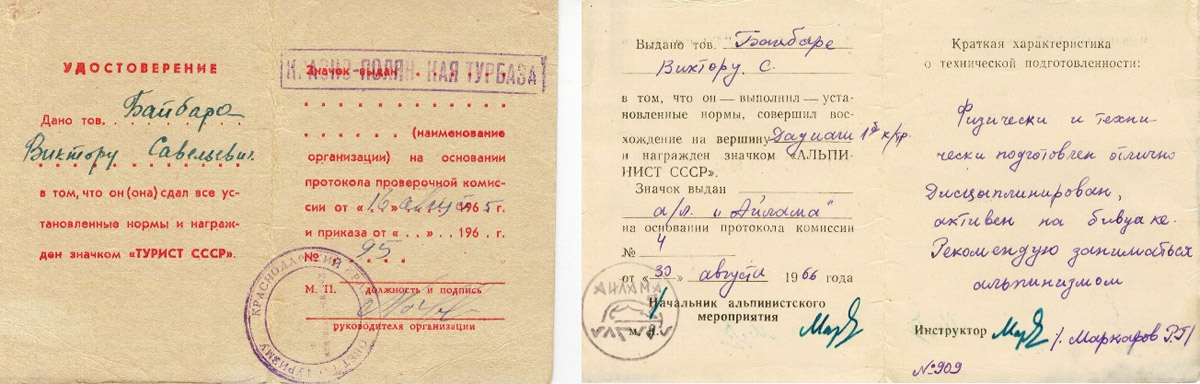 УДОСТОВЕРЕНИЕ
Дано тов. Байбара
Виктору Савельевич.
в том, что он (она) сдал все ус-
тановленные нормы и награж-
ден значком «ТУРИСТ СССР».
КРАСНО-ПОЛЯН КАЯ ТУРБАЗА
Значок выдан
(наименование
организации) на основании
протокола проверочной комис-
сии от «16» август 1965 г.
и приказа от «. .» . . . 196 . г.
№ 95
М. П.
должность и подпись
руководителя организации
КРАСНОДАРСКИЙ
СОВЕТ ПО ТУРИЗМУ
Выдано тов. Байбаре
Виктору. С.
в том, что он — выполнил — уста-
новленные нормы, совершил вос-
хождение на вершину Дадиаги 1б к/тр.
и награжден значком «АЛЬПИ-
НИСТ СССР».
Значок выдан
а/л. „Айлама"
на основании протокола комиссии
№ 4
от «30» августа 1966 года
Начальник альпинистского
мероприятия
М. П.
АЙЛАМА
Краткая характеристика
о технической подготовленности:
Физически и техни-
чески подготовлен отлично
Дисциплинирован,
активен на бивуаке.
Рекомендую заниматься
альпинизмом
Инструктор /. Маркаров Р.Г/
№909